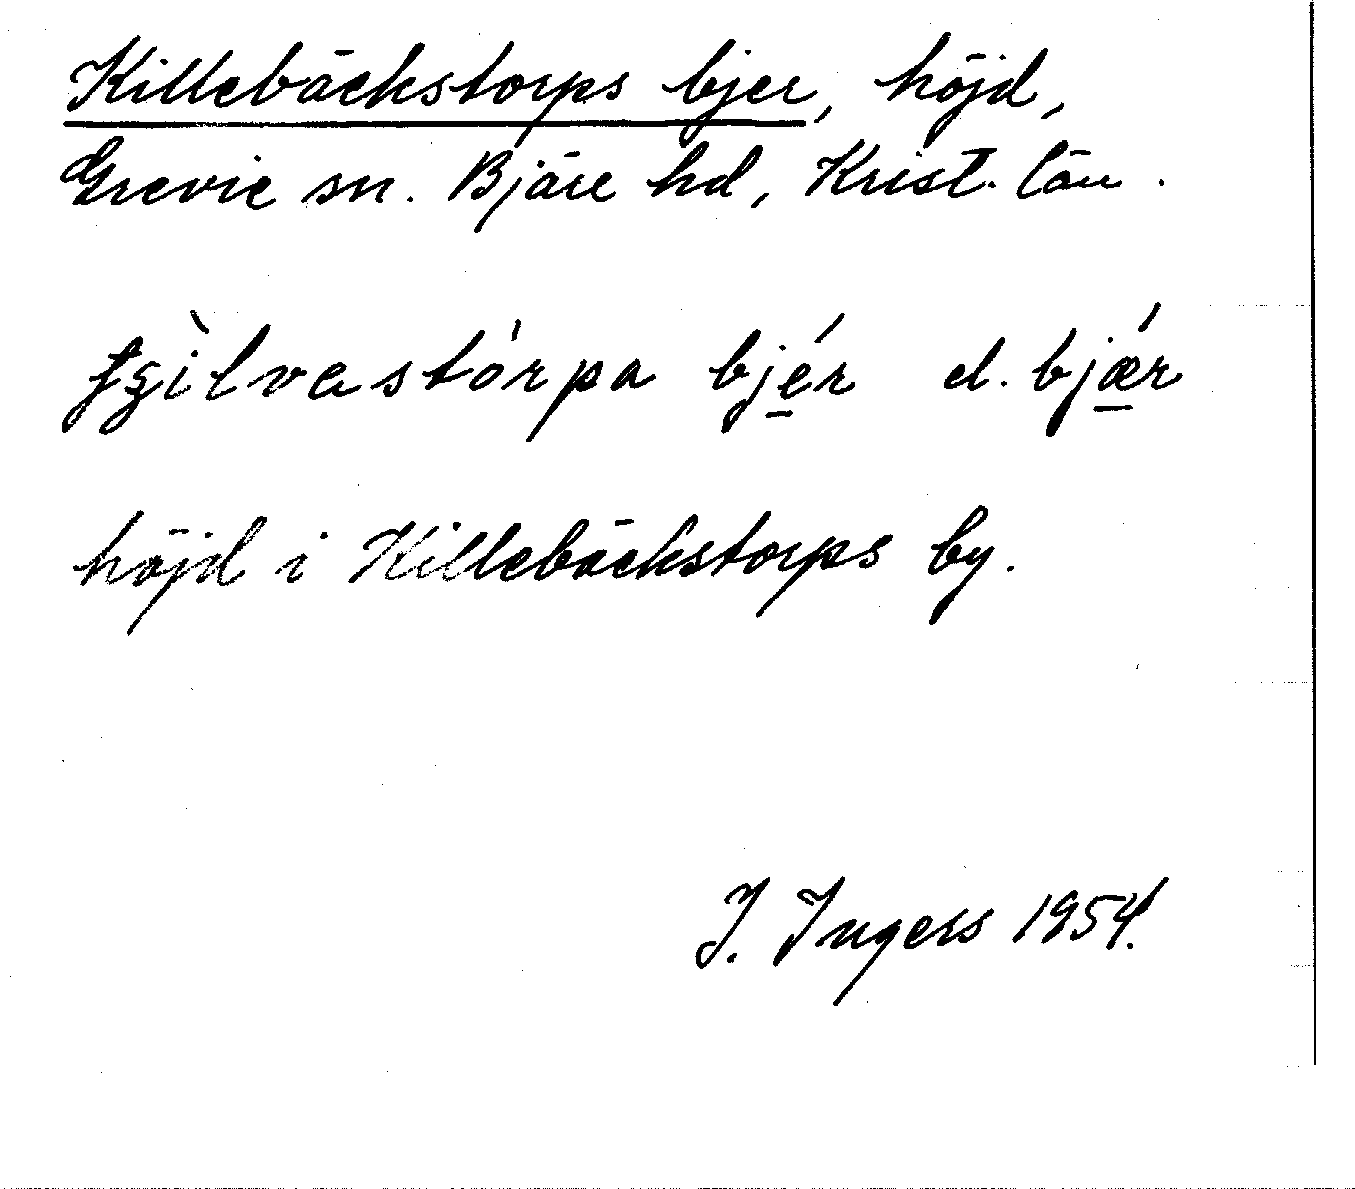 Killebäckstorps bjer, höjd,
Grevie sn. Bjäre hd, Krist. län.
bjér d. bjǽr
höjd i Killebäckstorps by.
J. Ingers 1954.